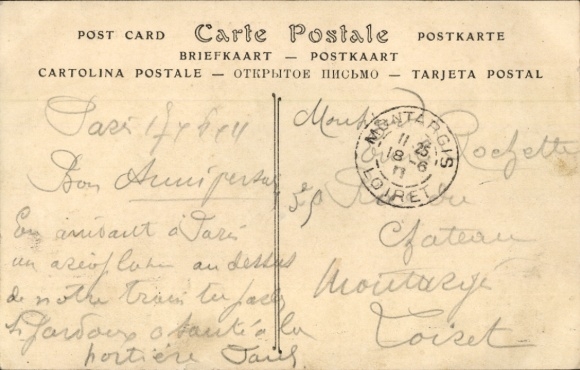 POST CARD Carte Postale POSTKARTE
BRIEFKAART — POSTKAART
CARTOLINA POSTALE — ОТКРЫТОЕ ПИСЬМО — TARJETA POSTAL
Paris 17 6 11
Bon Anniversai
En arrivant à Paris
un aéroplane au dessus
de notre train
a sauté à la
portière Paul
MONTARGIS
11 25
18 - 6
11
LOIRET
Rochette
Chateau
Montargis
Loiret